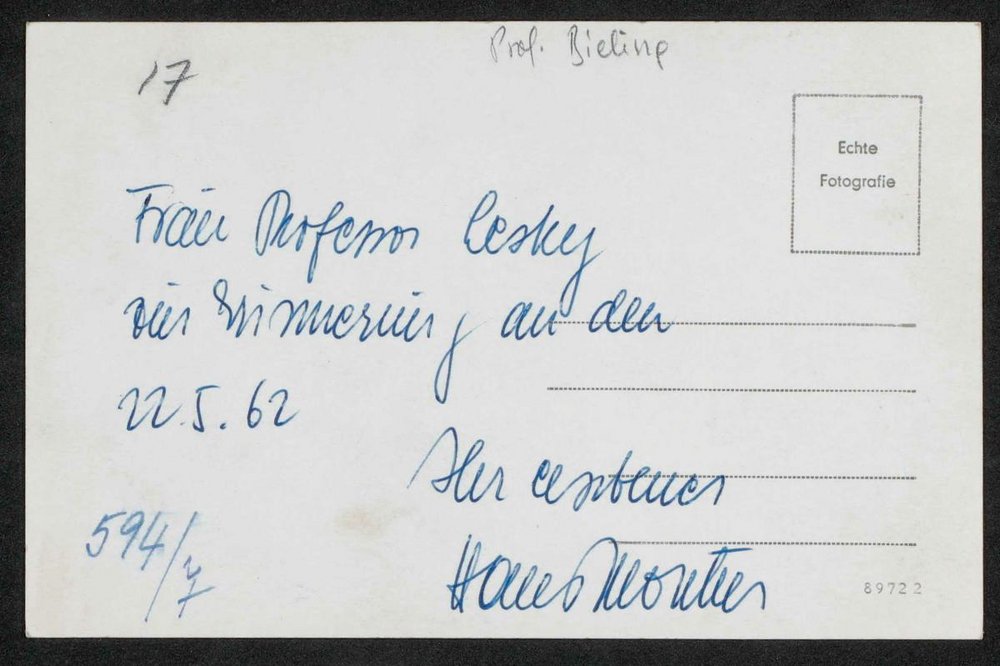 Prof. Bieling
17
Echte
Fotografie
Frau Professor Lesky
zur Erinnerung an den
22.5.62
Ihr ergebener
Hans
594/7
89722